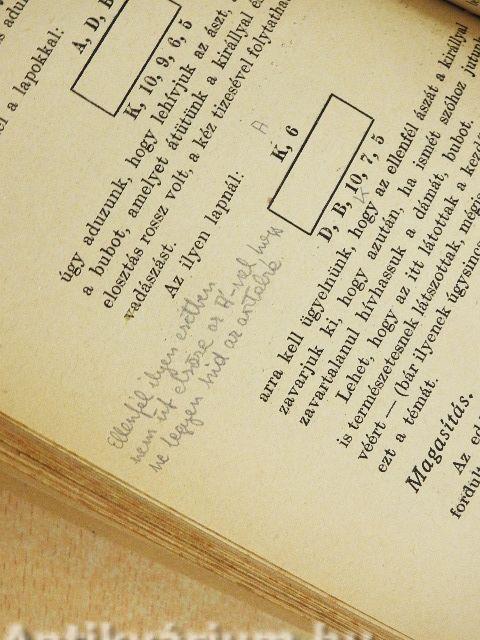 el a lapokkal:
A, D, B
K, 10, 9, 6, 5
úgy aduzunk, hogy lehívjuk az ászt,
a bubot, amelyet átütünk a királlyal é
elosztás rossz volt, a kéz tizesével folytatha
vadászást.
Az ilyen lapnál:
K, 6
A
D, B, 10, 7, 5
K
arra kell ügyelnünk, hogy az ellenfél ászát a királlyal
zavarjuk ki, hogy azután, ha ismét szóhoz jutun
zavartalanul hívhassuk a dámát, bubot.
Lehet, hogy az itt látottak a kezdő
is természetesnek látszottak, mégis
véért — (bár ilyenek úgysincs
ezt a témát.
Magasítás.
Az ed
fordult
Ellenfél ilyen esetben
nem üt először az A-val hogy
ne legyen híd az asztalra.
Antikvárium.hu